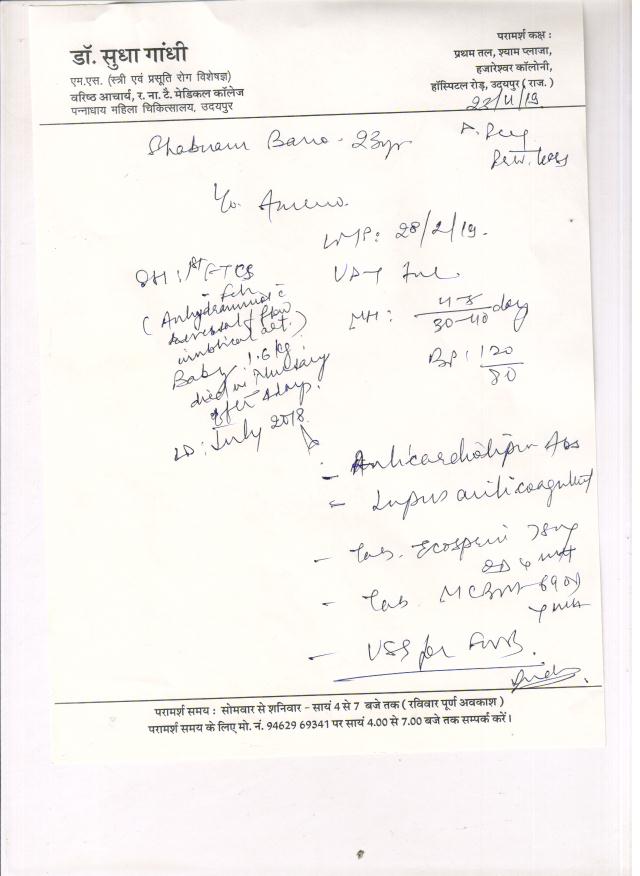 डॉ. सुधा गांधी
एम.एस. (स्त्री एवं प्रसूति रोग विशेषज्ञ)
वरिष्ठ आचार्य, र. ना. टै. मेडिकल कॉलेज
पन्नाधाय महिला चिकित्सालय, उदयपुर
परामर्श कक्ष :
प्रथम तल, श्याम प्लाजा,
हजारेश्वर कॉलोनी,
हॉस्पिटल रोड़, उदयपुर ( राज. )
23/4/19
Shabnam Bano - 23yr
Ameno.
LMP: 28/2/19.
OH: 1st FTCS
MH: 4-5 / 30-40 day
BP: 120 / 80
(Anhydramnios
reversal of flow
umbilical art.)
Baby 1.6 kg
died in Nursery
after
LD: July 2018
- Anticardiolipin Abs
- Lupus anticoagulant
- Tab. Ecosprin 75mg
- Tab.
- USG for
परामर्श समय : सोमवार से शनिवार - सायं 4 से 7 बजे तक ( रविवार पूर्ण अवकाश )
परामर्श समय के लिए मो. नं. 94629 69341 पर सायं 4.00 से 7.00 बजे तक सम्पर्क करें।